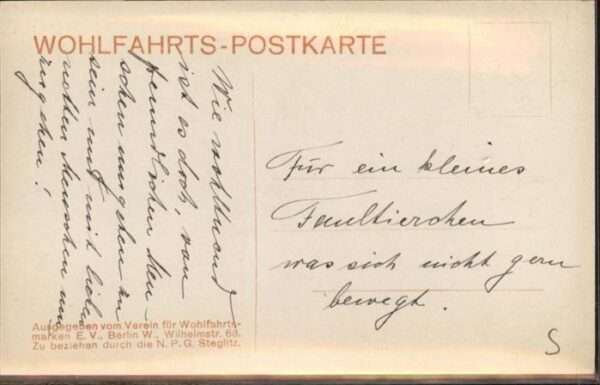 WOHLFAHRTS-POSTKARTE
Wie wohltuend
ist es doch, von
freundlichen Men-
schen umgeben zu
sein und mit lieben
netten Menschen um-
zugehen!
Für ein kleines
Faultierchen
was sich nicht gern
bewegt.
S
Ausgegeben vom Verein für Wohlfahrts-
marken E. V., Berlin W., Wilhelmstr. 68.
Zu beziehen durch die N. P. G. Steglitz.